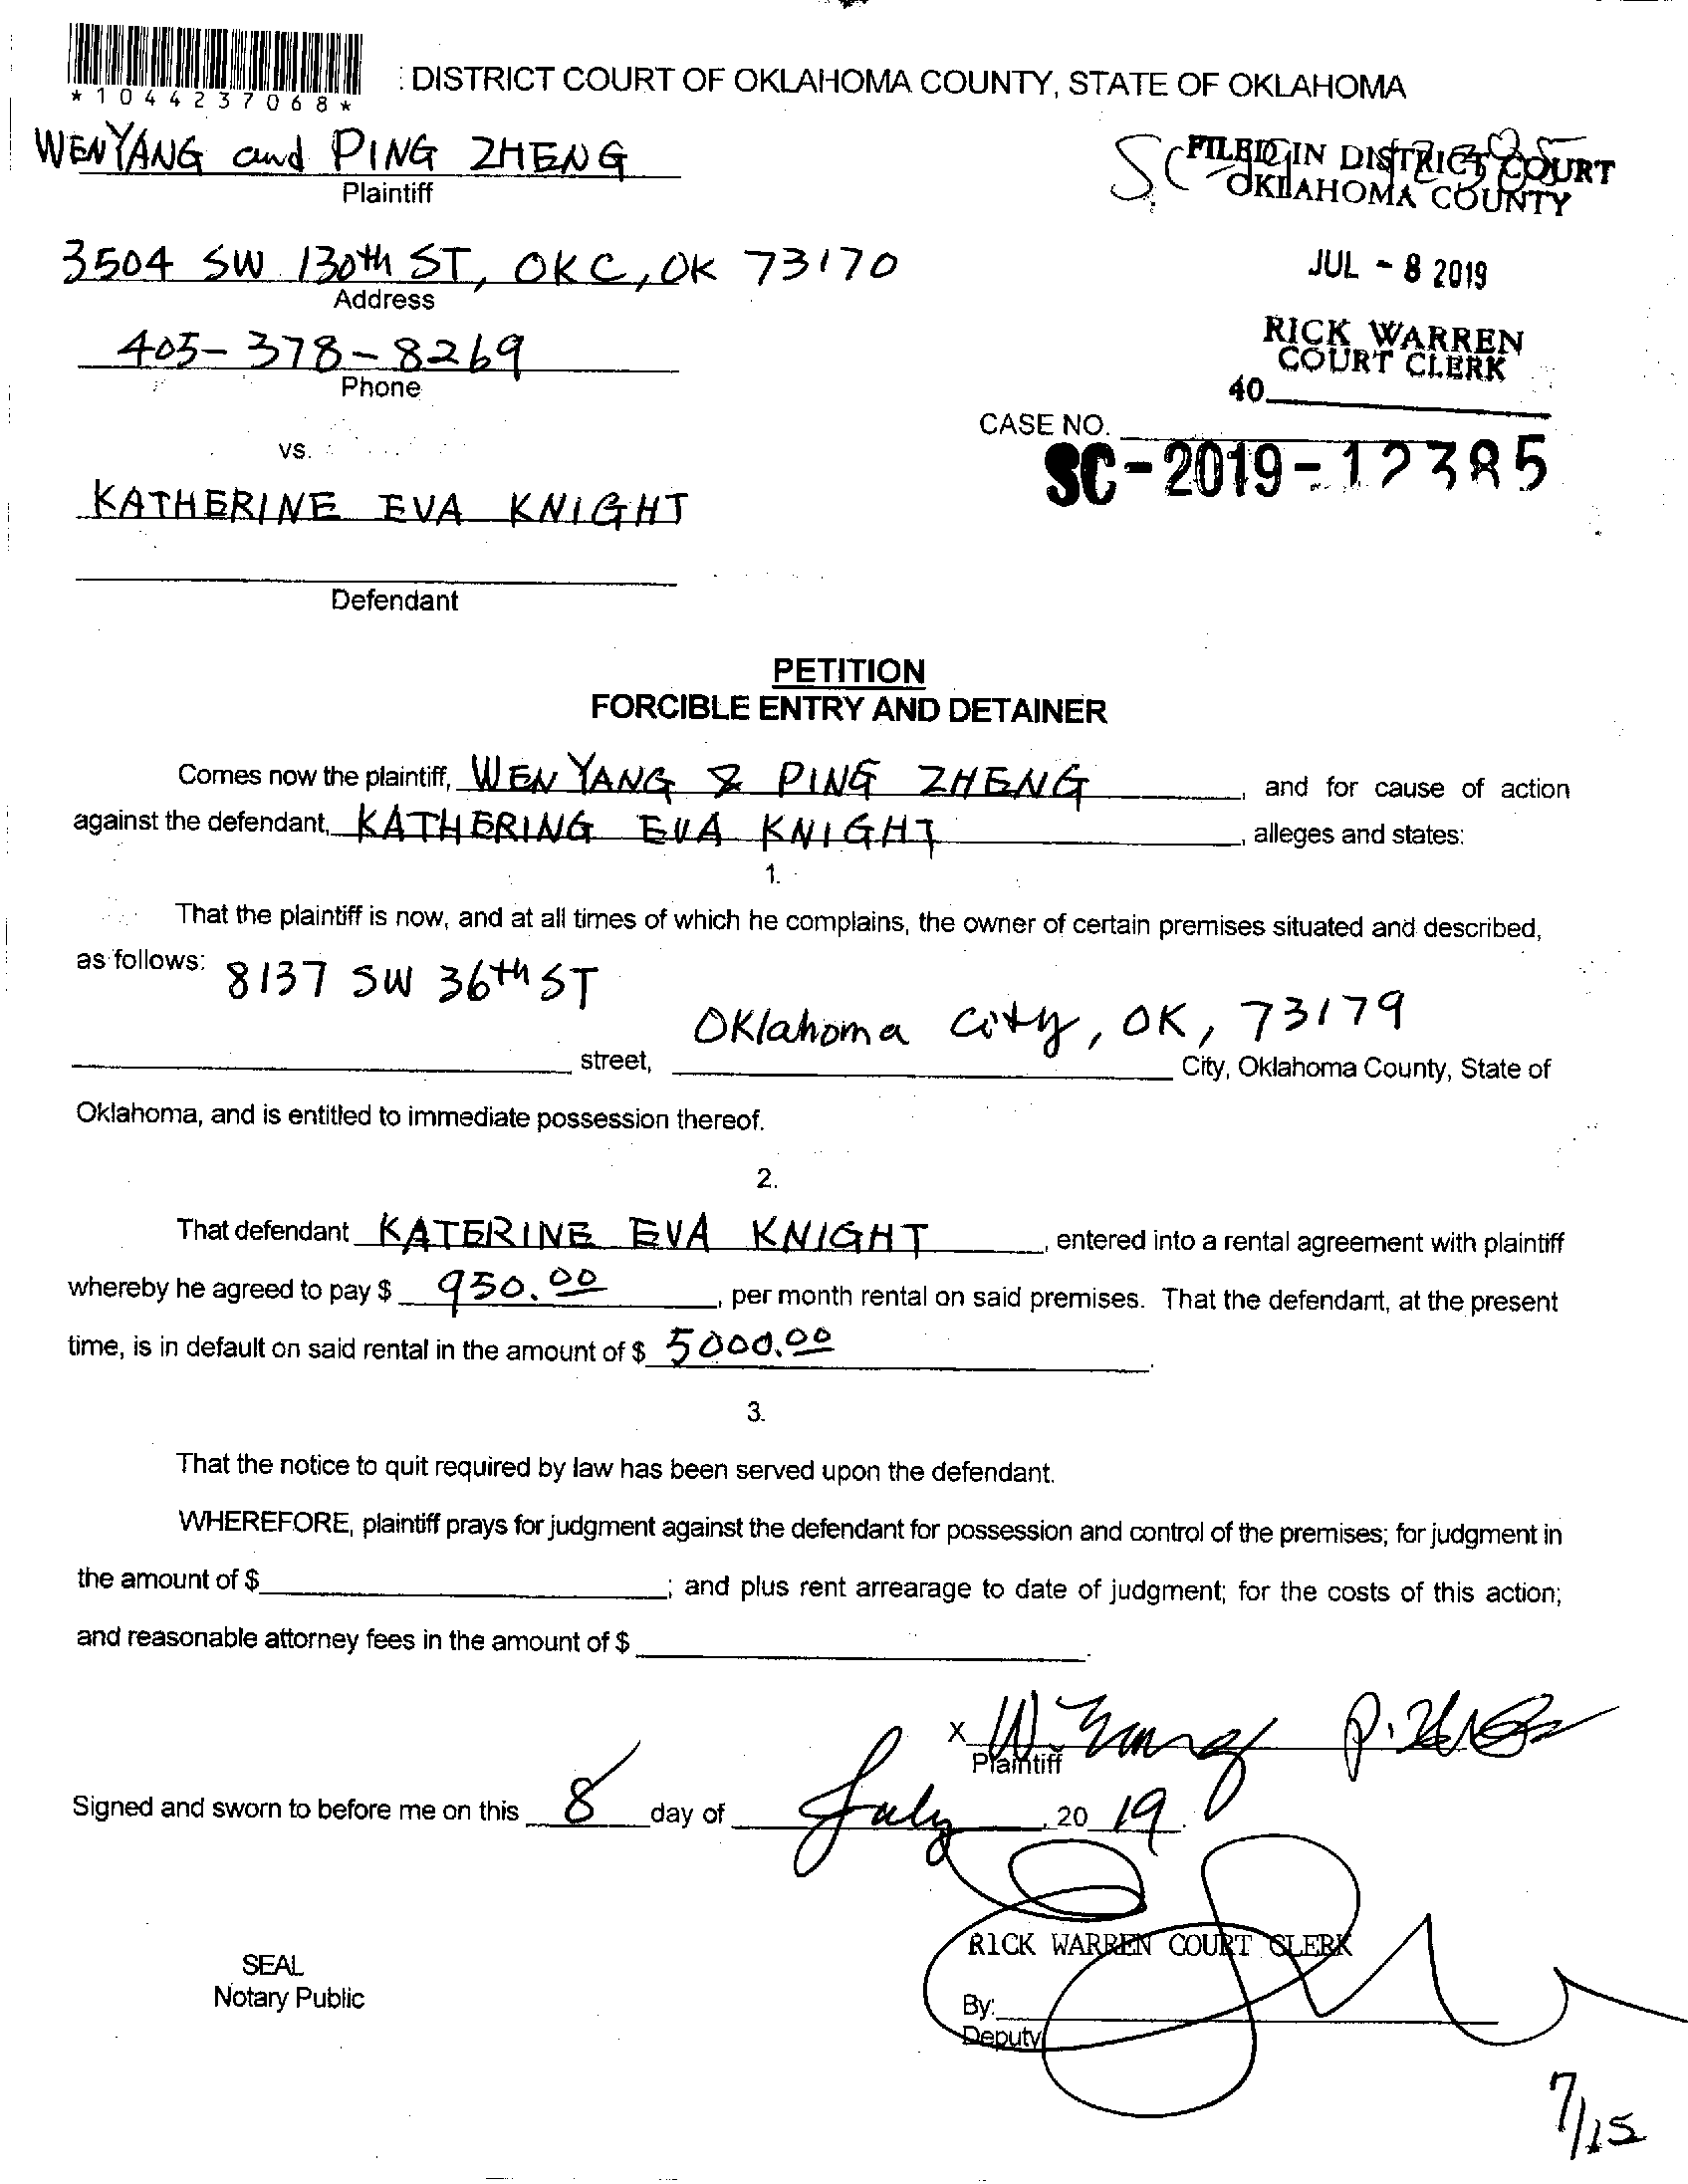 *1044237068*
: DISTRICT COURT OF OKLAHOMA COUNTY, STATE OF OKLAHOMA
WEN YANG and PING ZHENG
Plaintiff
FILED IN DISTRICT COURT
OKLAHOMA COUNTY
3504 SW 130th ST, OKC, OK 73170
Address
JUL - 8 2019
405-378-8269
Phone
RICK WARREN
COURT CLERK
40
CASE NO.
SC-2019-12385
vs.
KATHERINE EVA KNIGHT
Defendant
PETITION
FORCIBLE ENTRY AND DETAINER
Comes now the plaintiff, WEN YANG & PING ZHENG, and for cause of action
against the defendant, KATHERING EVA KNIGHT, alleges and states:
1.
That the plaintiff is now, and at all times of which he complains, the owner of certain premises situated and described,
as follows: 8137 SW 36th ST
Oklahoma City, OK, 73179
street, City, Oklahoma County, State of
Oklahoma, and is entitled to immediate possession thereof.
2.
That defendant KATERINE EVA KNIGHT, entered into a rental agreement with plaintiff
whereby he agreed to pay $ 950.00, per month rental on said premises. That the defendant, at the present
time, is in default on said rental in the amount of $ 5000.00.
3.
That the notice to quit required by law has been served upon the defendant.
WHEREFORE, plaintiff prays for judgment against the defendant for possession and control of the premises; for judgment in
the amount of $ ; and plus rent arrearage to date of judgment; for the costs of this action;
and reasonable attorney fees in the amount of $ .
X W. Yang
Plaintiff
Signed and sworn to before me on this 8 day of July, 2019.
RICK WARREN COURT CLERK
SEAL
Notary Public
By:
Deputy
7/15